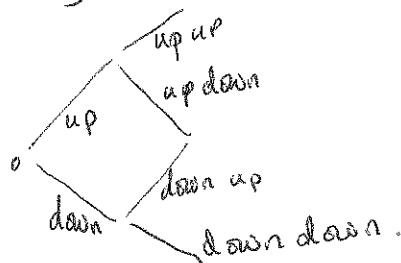 up up
up down
up
o
down up
down
down down.